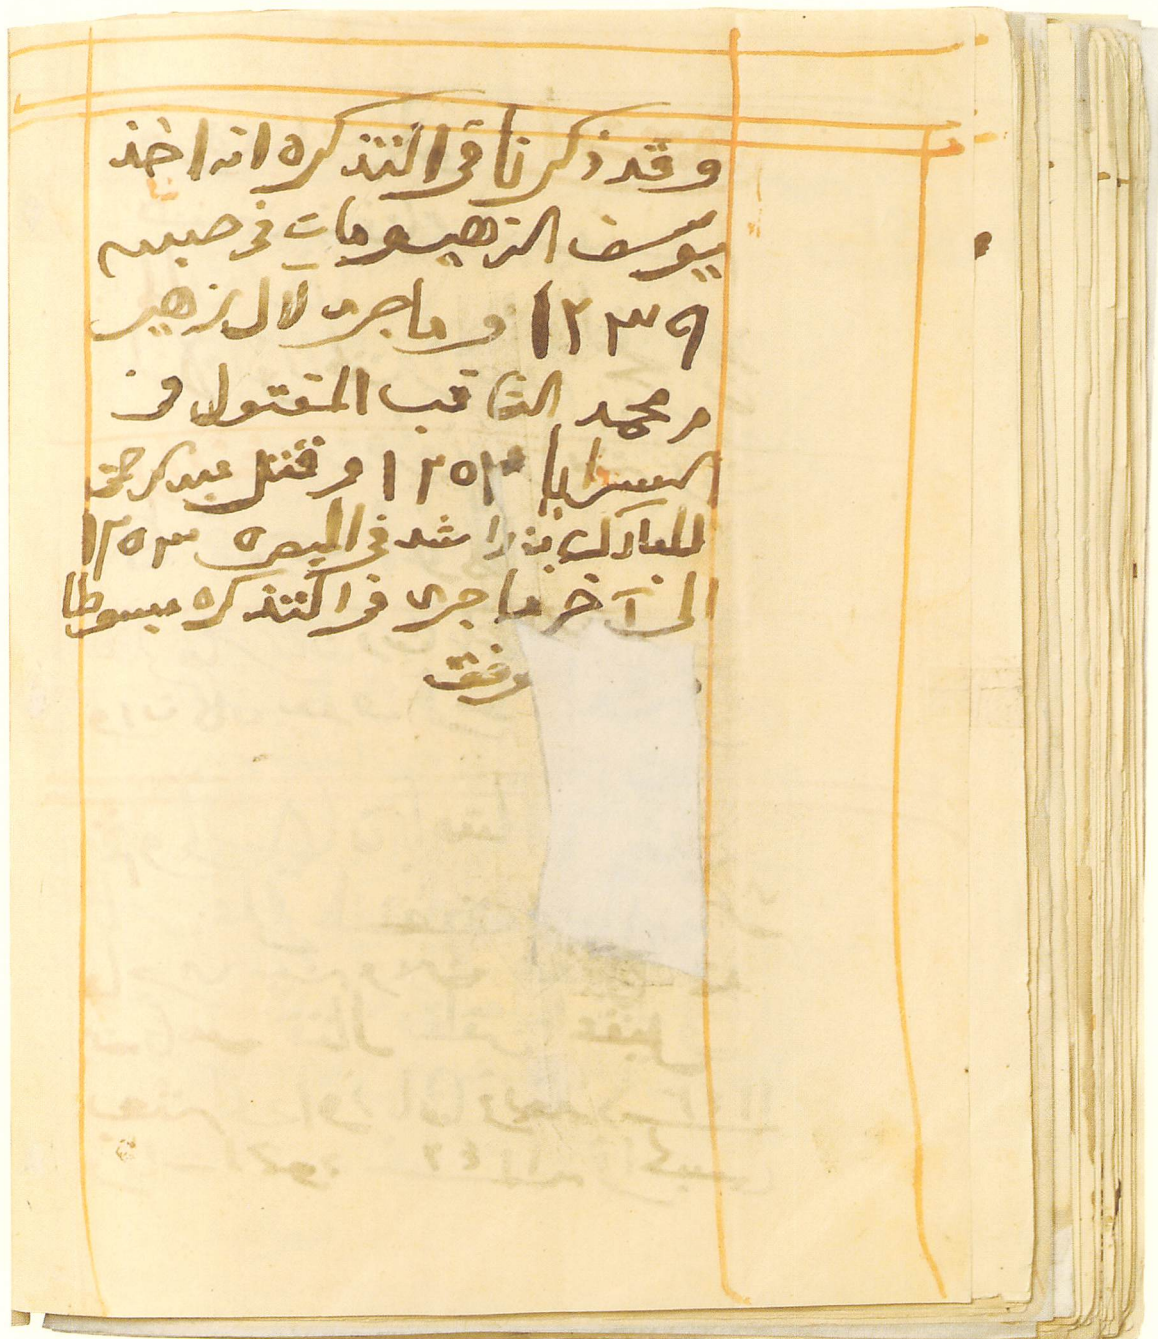 وقد ذكرنا في التذكره انه اخذ
يوسف الزهير ومات في حبسه
١٢٣٩ وما جرى لآل زهير
ومحمد الثاقب المقتول في
السرايا ١٢٥٣ وقتل
المبارك بن راشد في البصره ١٢٥٣
الى آخر ما جرى في التذكره مبسوطا